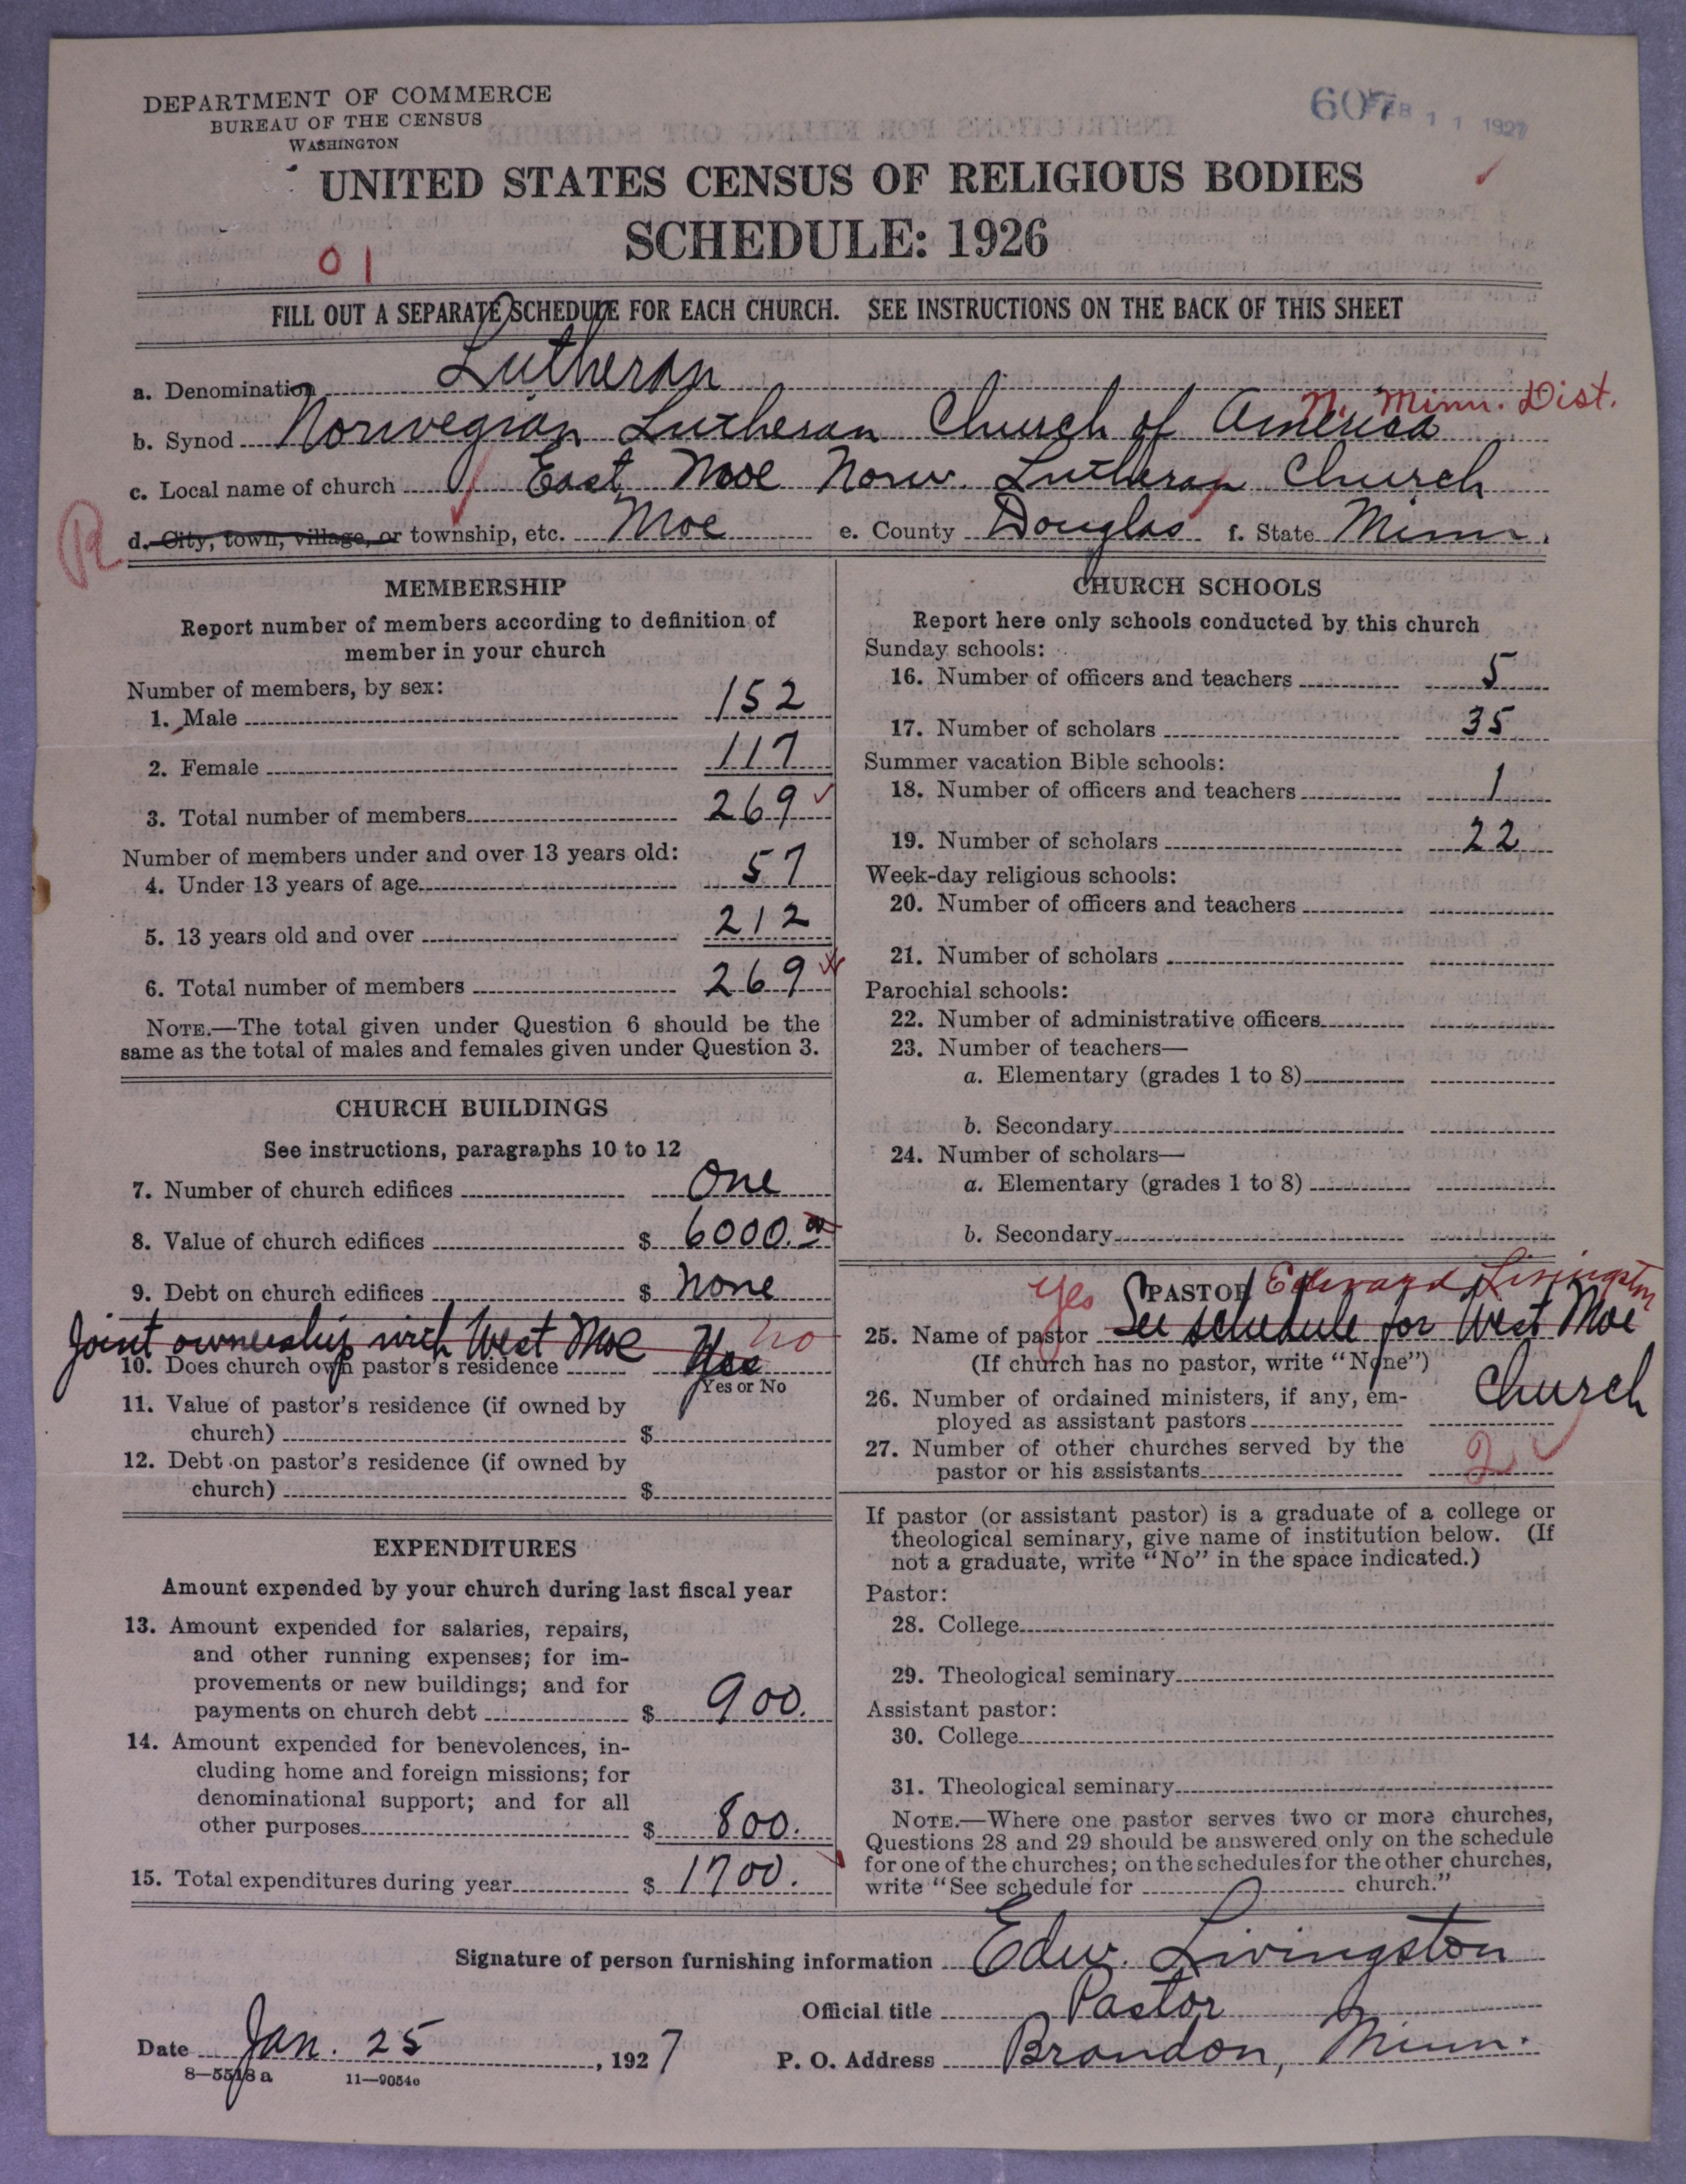 DEPARTMENT OF COMMERCE
BUREAU OF THE CENSUS
WASHINGTON
607 FEB 11 1927
UNITED STATES CENSUS OF RELIGIOUS BODIES
SCHEDULE: 1926
01
FILL OUT A SEPARATE SCHEDULE FOR EACH CHURCH. SEE INSTRUCTIONS ON THE BACK OF THIS SHEET
a. Denomination Lutheran
N. Minn. Dist.
b. Synod Norwegian Lutheran Church of America
c. Local name of church East Moe Norw. Lutheran Church
R d. City, town, village, or township, etc. Moe e. County Douglas f. State Minn.
MEMBERSHIP
Report number of members according to definition of
member in your church
Number of members, by sex:
1. Male 152
2. Female 117
3. Total number of members 269
Number of members under and over 13 years old:
4. Under 13 years of age 57
5. 13 years old and over 212
6. Total number of members 269
NOTE.—The total given under Question 6 should be the
same as the total of males and females given under Question 3.
CHURCH BUILDINGS
See instructions, paragraphs 10 to 12
7. Number of church edifices One
8. Value of church edifices $ 6000.00
9. Debt on church edifices $ None
Joint ownership with West Moe
10. Does church own pastor's residence Yes no
Yes or No
11. Value of pastor's residence (if owned by
church) $
12. Debt on pastor's residence (if owned by
church) $
EXPENDITURES
Amount expended by your church during last fiscal year
13. Amount expended for salaries, repairs,
and other running expenses; for im-
provements or new buildings; and for
payments on church debt $ 900.
14. Amount expended for benevolences, in-
cluding home and foreign missions; for
denominational support; and for all
other purposes $ 800.
15. Total expenditures during year $ 1700.
CHURCH SCHOOLS
Report here only schools conducted by this church
Sunday schools:
16. Number of officers and teachers 5
17. Number of scholars 35
Summer vacation Bible schools:
18. Number of officers and teachers 1
19. Number of scholars 22
Week-day religious schools:
20. Number of officers and teachers
21. Number of scholars
Parochial schools:
22. Number of administrative officers
23. Number of teachers—
a. Elementary (grades 1 to 8)
b. Secondary
24. Number of scholars—
a. Elementary (grades 1 to 8)
b. Secondary
Yes PASTOR Edward Livingston
25. Name of pastor See schedule for West Moe
(If church has no pastor, write "None") Church
26. Number of ordained ministers, if any, em-
ployed as assistant pastors
27. Number of other churches served by the
pastor or his assistants 2
If pastor (or assistant pastor) is a graduate of a college or
theological seminary, give name of institution below. (If
not a graduate, write "No" in the space indicated.)
Pastor:
28. College
29. Theological seminary
Assistant pastor:
30. College
31. Theological seminary
NOTE.—Where one pastor serves two or more churches,
Questions 28 and 29 should be answered only on the schedule
for one of the churches; on the schedules for the other churches,
write "See schedule for church."
Signature of person furnishing information Edw. Livingston
Official title Pastor
Date Jan. 25, 1927 P. O. Address Brandon, Minn.
8—5518a 11—9054c